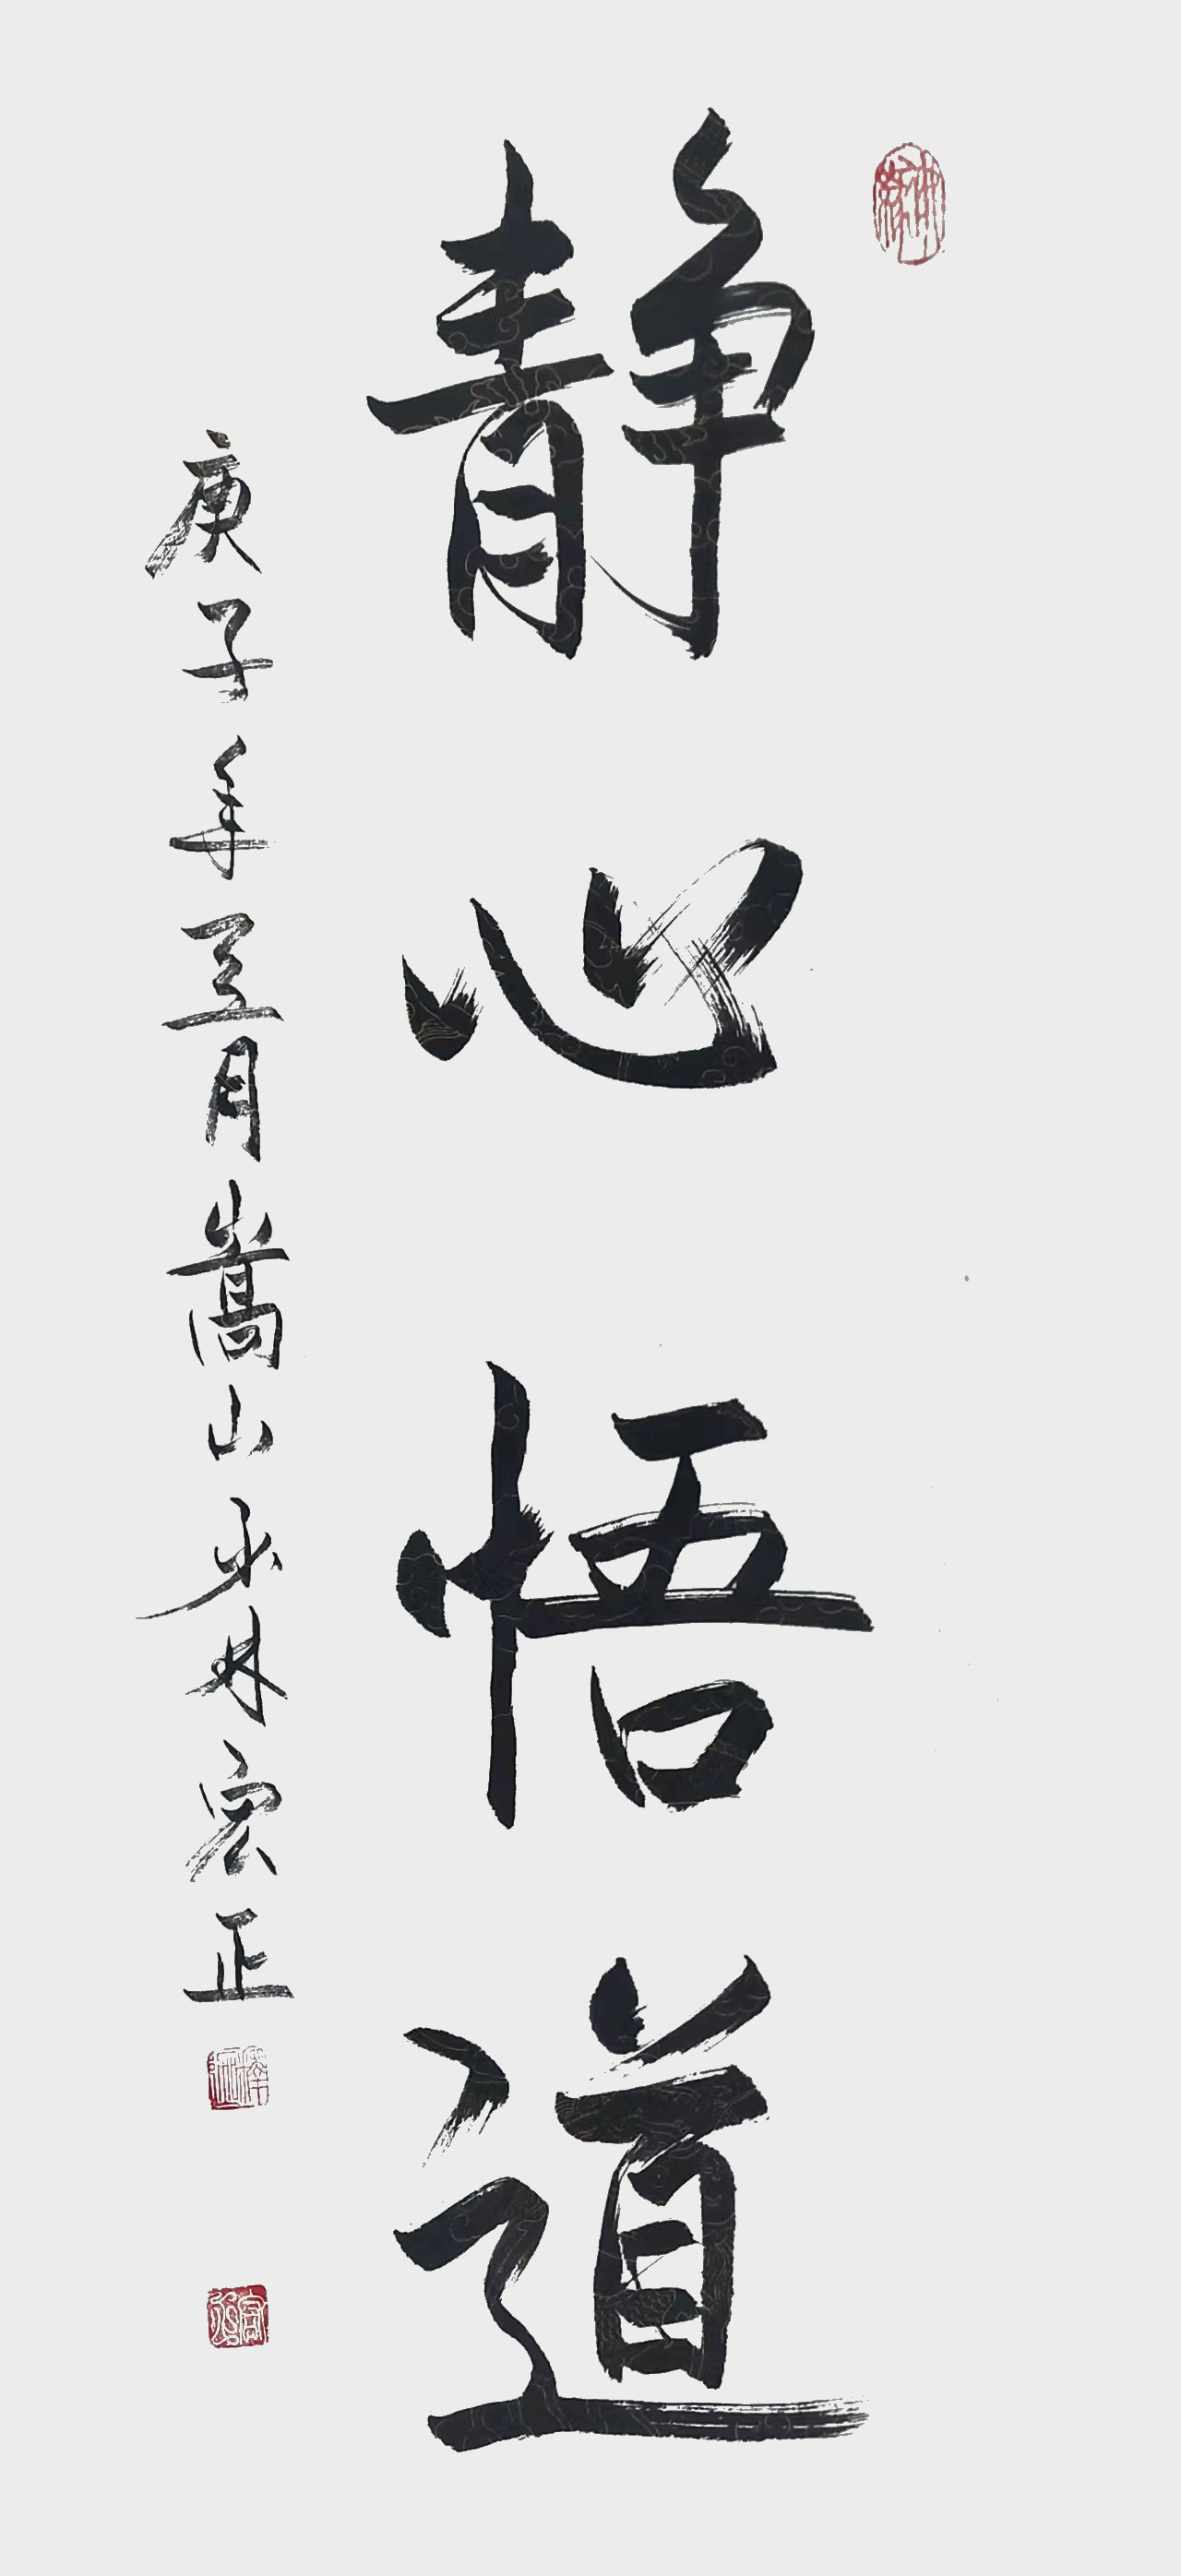 静心悟道
庚子年五月嵩山少林宏正